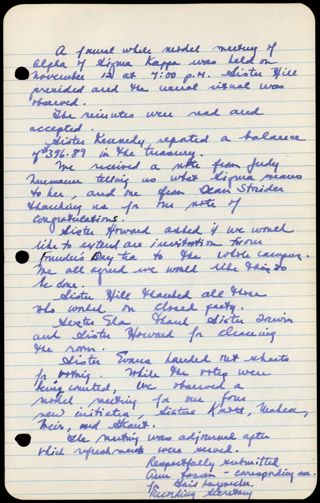 A formal white model meeting of
Alpha of Sigma Kappa was held on
November 12 at 7:00 P.M. Sister Hill
presided and the usual ritual was
observed.
The minutes were read and
accepted.
Sister Kennedy reported a balance
of $376.89 in the treasury.
We received a note from Judy
telling us what Sigma means
to her, and one from Dean Strider
thanking us for our note of
congratulations.
Sister Howard asked if we would
like to extend an invitation from
Founders Day tea to the whole campus.
We all agreed we would like this to
be done.
Sister Hill thanked all those
who worked on closed party.
Sister thank Sister
and Sister Howard for cleaning
the room.
Sister Evans handed out sheets
for voting. While the votes were
being counted, we observed a
model meeting for our four
new initiates, Sisters
and
The meeting was adjourned after
which refreshments were served.
Respectfully submitted
Ann - corresponding sec.
for Gail
Recording Secretary